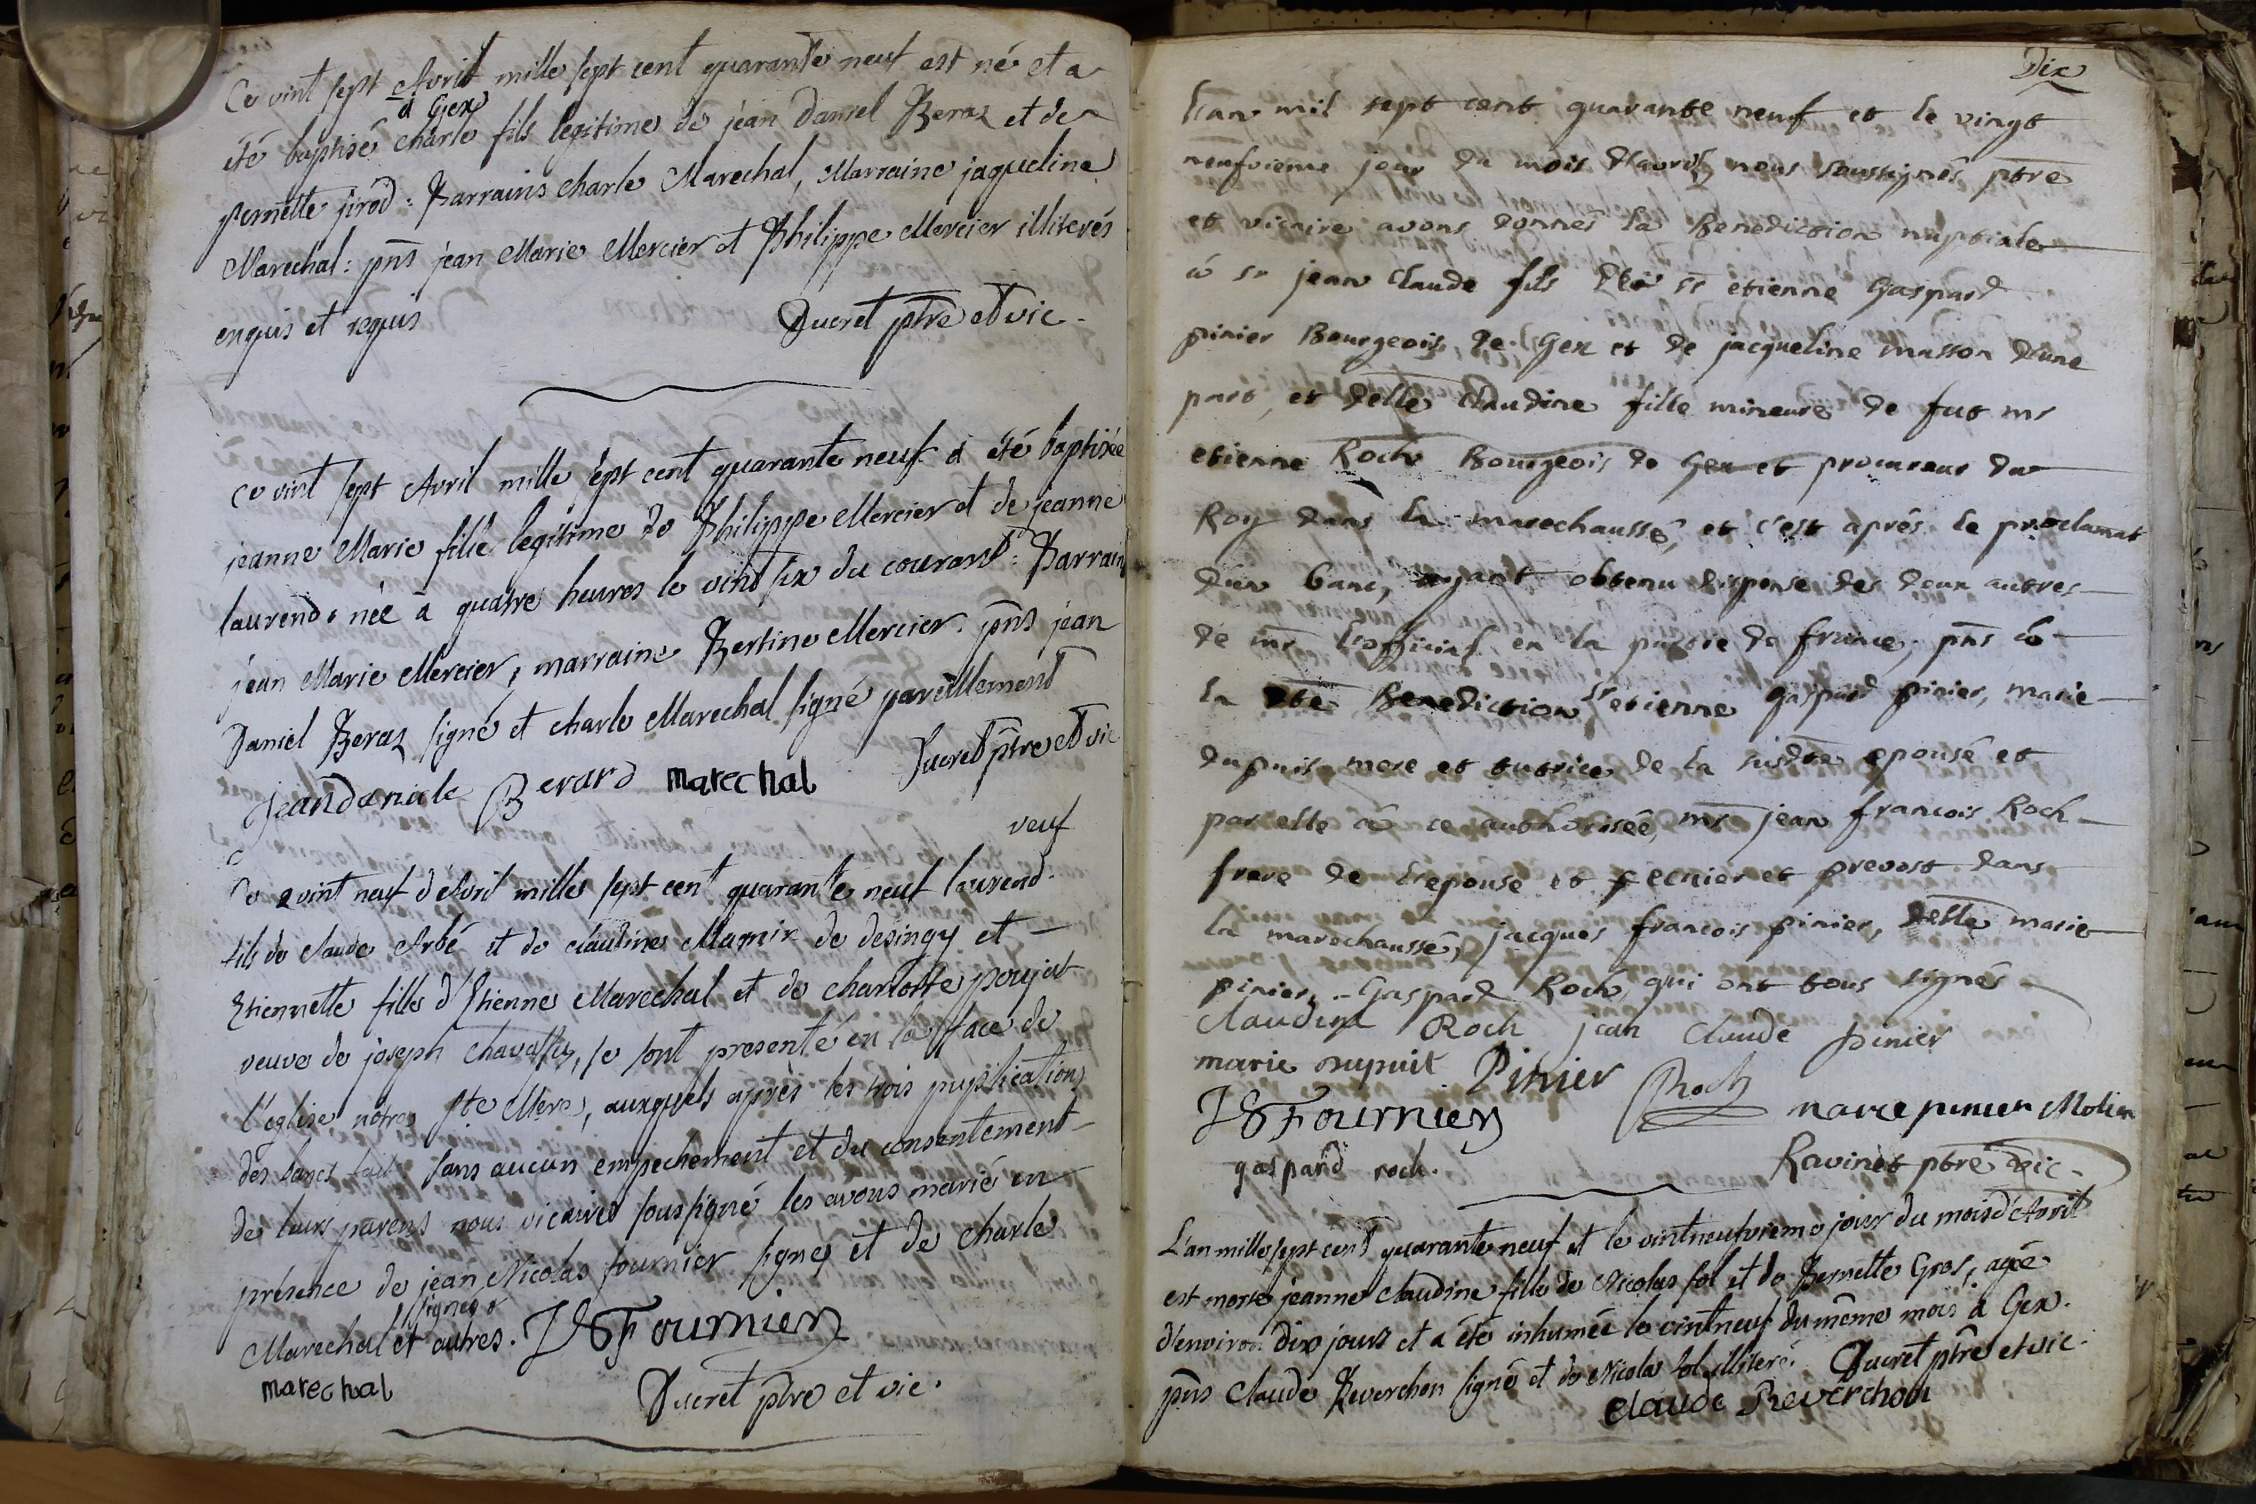 Ce vint sept Avril mille sept cent quarante neuf est né et a
à Gex
été baptisé charle fils legitime de jéan Daniel Beraz et de
pernette jirod : Parrains charle Marechal, Marraine jaqueline
Marechal : pns jean Marie Mercier et Philippe Mercier illiterés
enquis et requis
Ducret ptre et vic.
Ce vint sept Avril mille sept cent quarante neuf a été baptisée
jeanne Marie fille legitime de Philippe Mercier et de jeanne
laurend. née à quatre heures le vint six du courant : Parrain
jéan Marie Mercier, marraine Bertine Mercier. pns jéan
Daniel Beraz signé et charle Marechal signé pareillement
Ducret ptre et vic
Jean daniele Berard marechal
veuf
Ce vint neuf d'Avril mille sept cent quarante neuf laurend
fils de claude Arbé et de claudine Mamir de desingy et
Etiennette fille d'Etienne Marechal et de charlotte poujat
veuve de joseph se sont presenté en la face de
l'eglise nôtre ste Mere, auxquels après les trois puplications
des bancs sans aucun empechement et du consentement
de leurs parens nous vicaire soussigné les avons marié en
présence de jean Nicolas fournier signes et de charle
signes
Marechal et autres. JNFournier
marechal
Ducret ptre et vic.
Dix
L'an mil sept cent quarante neuf et le vingt
neufvieme jour du mois d'avril, nous soussignés ptre
et vicaire avons donnés la Benediction nuptiale
à sr jean Claude fils de sr etienne Gaspard
pinier Bourgeois de Gex et de jacqueline masson d'une
part, et delle Claudine fille mineure de fut mr
etienne Roch Bourgeois de Gex et procureur du
Roy dans la marechaussé, et c'est aprés le proclamat
d'un banc, ayant obtenu dispense des deux autres
de mr l'official en la partie de france, pns à
la dte Benediction, sr etienne gaspard pinier, marie
dupuis mere et tutrice de la susdte epousé et
par elle à ce authorisée, mr jean francois Roch
frere de l'epouse et et prevost dans
la marechaussé, jacques francois pinier, delle marie
pinier, Gaspard Roch, qui ont tous signés
Claudine Roch jean Claude pinier
marie Dupuit Pinier Roch
JNFournier marie pinier Molien
gaspard roch.
Ravinet ptre vic.
L'an mille sept cent quarante neuf et le vint neufvieme jour du mois d'Avril
est morte jeanne claudine fille de Nicolas fol et de Pernette Gros, agée
d'environ dix jours et a été inhumée le vint neuf du même mois à Gex.
pns Claude Reverchon signé et de Nicola fol illiteré. Ducret ptre et vic.
claude Reverchon